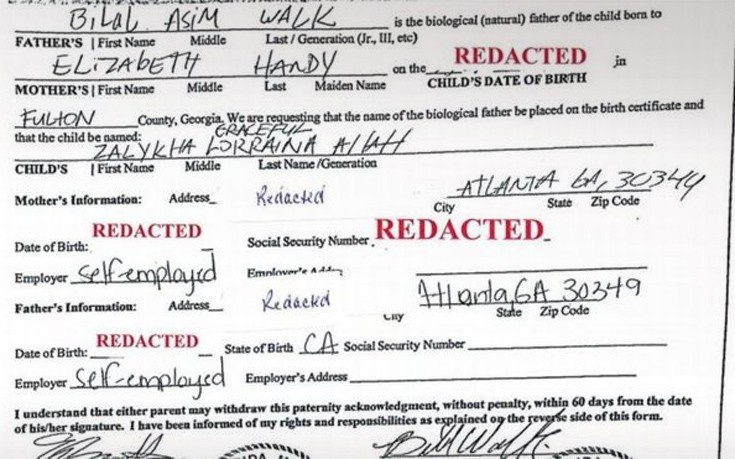 BILAL ASIM WALK is the biological (natural) father of the child born to
FATHER'S | First Name Middle Last / Generation (Jr., III, etc)
ELIZABETH HANDY on the REDACTED in
MOTHER'S | First Name Middle Last Maiden Name CHILD'S DATE OF BIRTH
FULTON County, Georgia. We are requesting that the name of the biological father be placed on the birth certificate and
that the child be named: GRACEFUL
ZALYKHA LORRAINA Allah
CHILD'S | First Name Middle Last Name/Generation
Mother's Information: Address Redacted ATLANTA GA, 30349
City State Zip Code
Date of Birth: REDACTED Social Security Number REDACTED
Employer self-employed Employer's Addr
Father's Information: Address Redacted Atlanta, GA 30349
City State Zip Code
Date of Birth: REDACTED State of Birth CA Social Security Number
Employer self-employed Employer's Address
I understand that either parent may withdraw this paternity acknowledgment, without penalty, within 60 days from the date
of his/her signature. I have been informed of my rights and responsibilities as explained on the reverse side of this form.